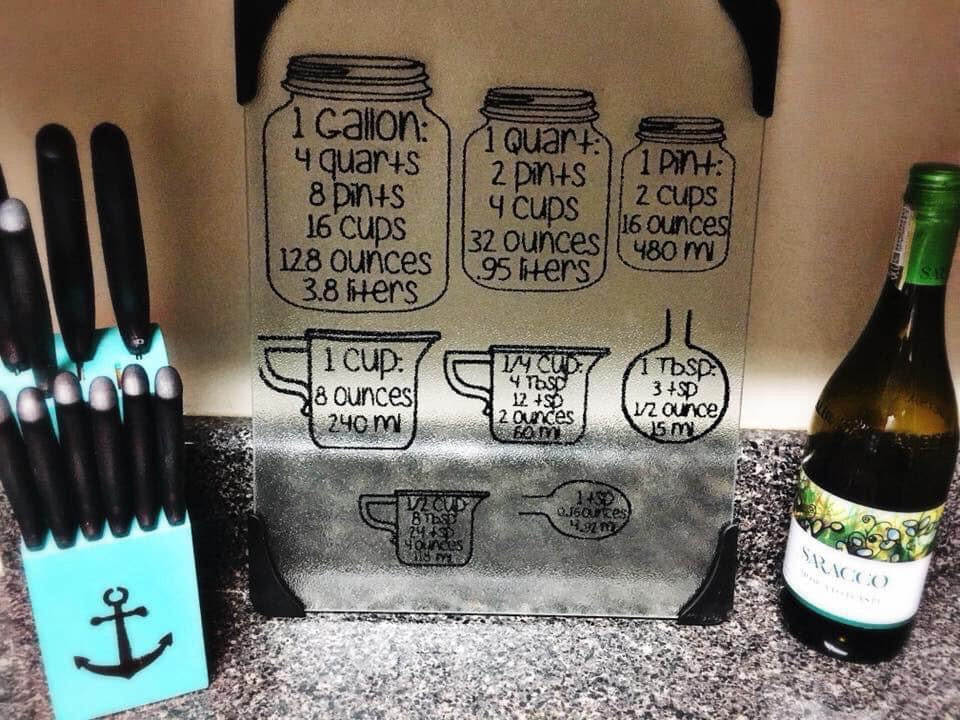 1 Gallon:
4 quarts
8 pints
16 cups
128 ounces
3.8 liters
1 Quart:
2 pints
4 cups
32 ounces
.95 liters
1 Pint:
2 cups
16 ounces
480 ml
1 cup:
8 ounces
240 ml
1/4 cup:
4 Tbsp
12 tsp
2 ounces
60 ml
1 Tbsp:
3 tsp
1/2 ounce
15 ml
1/2 cup
8 Tbsp
24 tsp
4 ounces
118 ml
1 tsp
0.16 ounces
4.92 ml
SARACCO